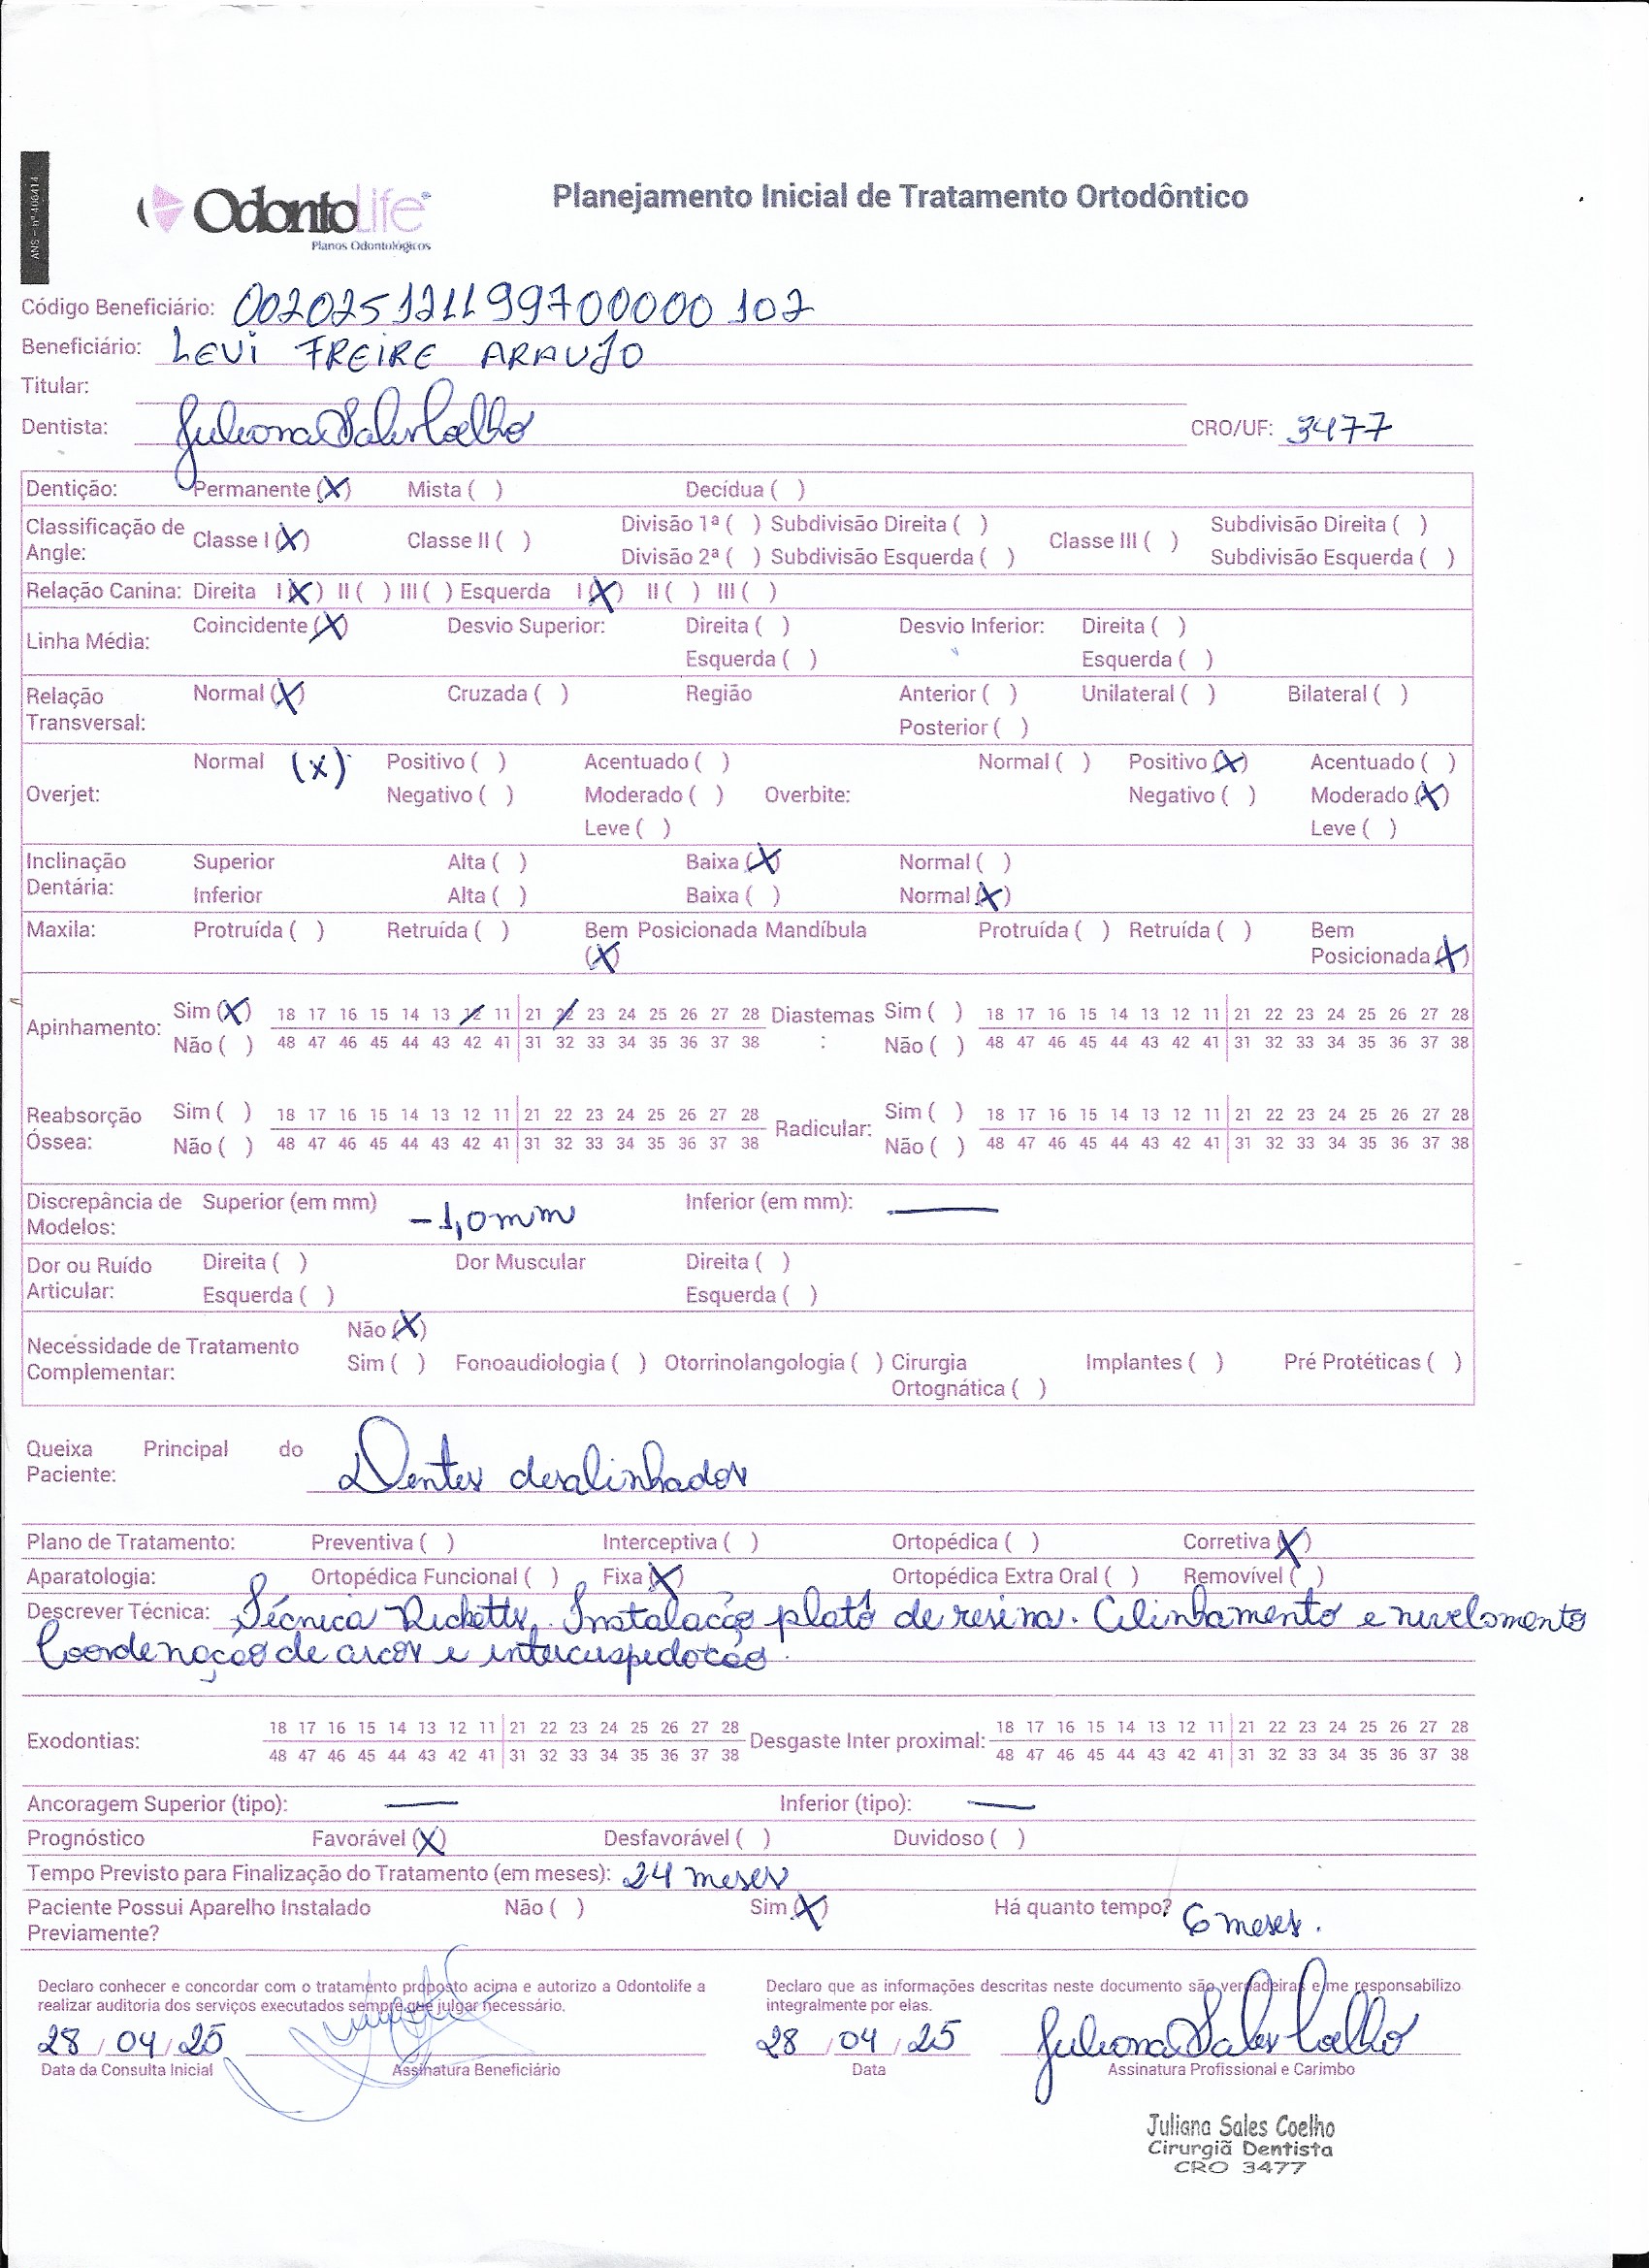 ANS - nº 406414
OdontoLife
Planos Odontológicos
Planejamento Inicial de Tratamento Ortodôntico
Código Beneficiário: 00202512119970000 0 102
Beneficiário: LEVI FREIRE ARAUJO
Titular:
Dentista: Juliana Sales Coelho CRO/UF: 3477
Dentição: Permanente (X) Mista ( ) Decídua ( )
Classificação de Angle: Classe I (X) Classe II ( ) Divisão 1ª ( ) Subdivisão Direita ( ) Classe III ( ) Subdivisão Direita ( )
Divisão 2ª ( ) Subdivisão Esquerda ( ) Subdivisão Esquerda ( )
Relação Canina: Direita I (X) II ( ) III ( ) Esquerda I (X) II ( ) III ( )
Linha Média: Coincidente (X) Desvio Superior: Direita ( ) Desvio Inferior: Direita ( )
Esquerda ( ) Esquerda ( )
Relação Transversal: Normal (X) Cruzada ( ) Região Anterior ( ) Unilateral ( ) Bilateral ( )
Posterior ( )
Normal (X) Positivo ( ) Acentuado ( ) Normal ( ) Positivo (X) Acentuado ( )
Overjet: Negativo ( ) Moderado ( ) Overbite: Negativo ( ) Moderado (X)
Leve ( ) Leve ( )
Inclinação Dentária: Superior Alta ( ) Baixa (X) Normal ( )
Inferior Alta ( ) Baixa ( ) Normal (X)
Maxila: Protruída ( ) Retruída ( ) Bem Posicionada (X) Mandíbula Protruída ( ) Retruída ( ) Bem Posicionada (X)
Apinhamento: Sim (X) 18 17 16 15 14 13 12 11 21 22 23 24 25 26 27 28 Diastemas: Sim ( ) 18 17 16 15 14 13 12 11 21 22 23 24 25 26 27 28
Não ( ) 48 47 46 45 44 43 42 41 31 32 33 34 35 36 37 38 Não ( ) 48 47 46 45 44 43 42 41 31 32 33 34 35 36 37 38
Reabsorção Óssea: Sim ( ) 18 17 16 15 14 13 12 11 21 22 23 24 25 26 27 28 Radicular: Sim ( ) 18 17 16 15 14 13 12 11 21 22 23 24 25 26 27 28
Não ( ) 48 47 46 45 44 43 42 41 31 32 33 34 35 36 37 38 Não ( ) 48 47 46 45 44 43 42 41 31 32 33 34 35 36 37 38
Discrepância de Modelos: Superior (em mm) -1,0mm Inferior (em mm): —
Dor ou Ruído Articular: Direita ( ) Dor Muscular Direita ( )
Esquerda ( ) Esquerda ( )
Necessidade de Tratamento Complementar: Não (X)
Sim ( ) Fonoaudiologia ( ) Otorrinolangologia ( ) Cirurgia Ortognática ( ) Implantes ( ) Pré Protéticas ( )
Queixa Principal do Paciente: Dentes desalinhados
Plano de Tratamento: Preventiva ( ) Interceptiva ( ) Ortopédica ( ) Corretiva (X)
Aparatologia: Ortopédica Funcional ( ) Fixa (X) Ortopédica Extra Oral ( ) Removível ( )
Descrever Técnica: Técnica Ricketts. Instalação platô de resina. Alinhamento e nivelamento
Coordenação de arcos e intercuspidação.
Exodontias: 18 17 16 15 14 13 12 11 21 22 23 24 25 26 27 28 Desgaste Inter proximal: 18 17 16 15 14 13 12 11 21 22 23 24 25 26 27 28
48 47 46 45 44 43 42 41 31 32 33 34 35 36 37 38 48 47 46 45 44 43 42 41 31 32 33 34 35 36 37 38
Ancoragem Superior (tipo): — Inferior (tipo): —
Prognóstico Favorável (X) Desfavorável ( ) Duvidoso ( )
Tempo Previsto para Finalização do Tratamento (em meses): 24 meses
Paciente Possui Aparelho Instalado Previamente? Não ( ) Sim (X) Há quanto tempo? 6 meses.
Declaro conhecer e concordar com o tratamento proposto acima e autorizo a Odontolife a
realizar auditoria dos serviços executados sempre que julgar necessário.
28 / 04 / 25
Data da Consulta Inicial Assinatura Beneficiário
Declaro que as informações descritas neste documento são verdadeiras e me responsabilizo
integralmente por elas.
28 / 04 / 25 Juliana Sales Coelho
Data Assinatura Profissional e Carimbo
Juliana Sales Coelho
Cirurgiã Dentista
CRO 3477